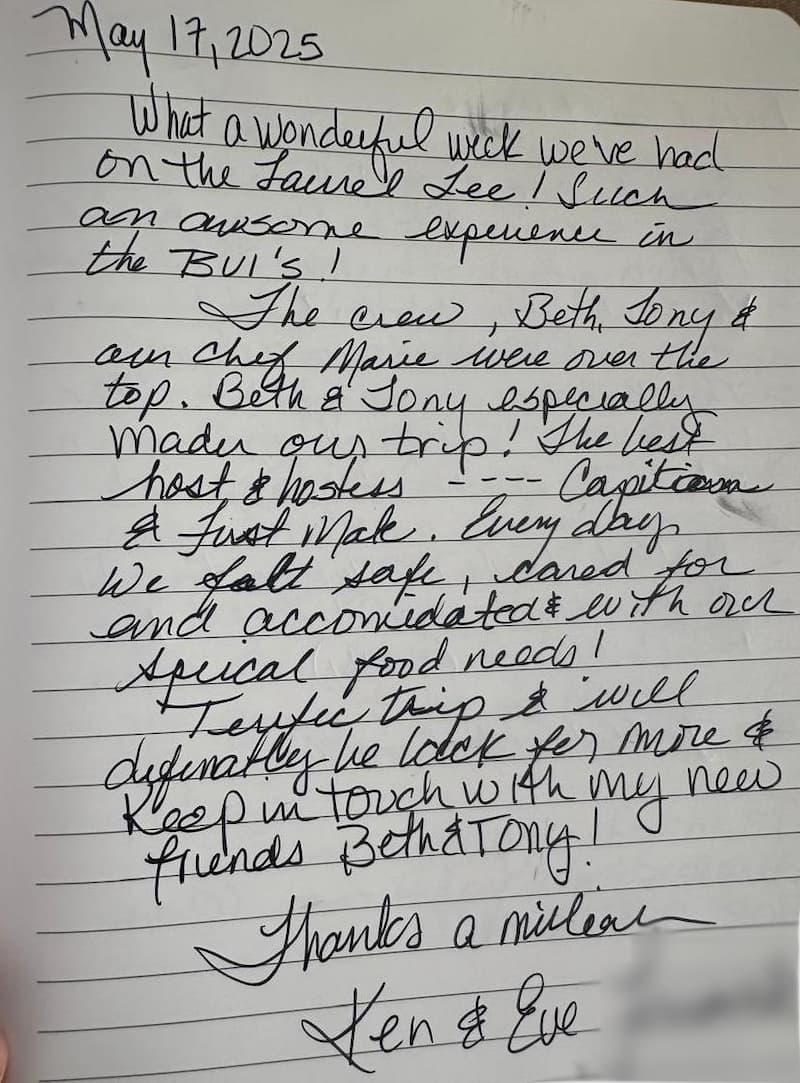 May 17, 2025
What a wonderful week we've had
on the Laurel Lee! Such
an awesome experience in
the BVI's!
The crew, Beth, Tony &
our chef Marie were over the
top. Beth & Tony especially
made our trip! The best
host & hostess ---- Capitian
& First Mate. Every day
We felt safe, cared for
and accomidated & with our
speical food needs!
Terrific trip & will
definatley be back for more &
Keep in touch with my new
friends Beth & Tony!
Thanks a million
Ken & Eve